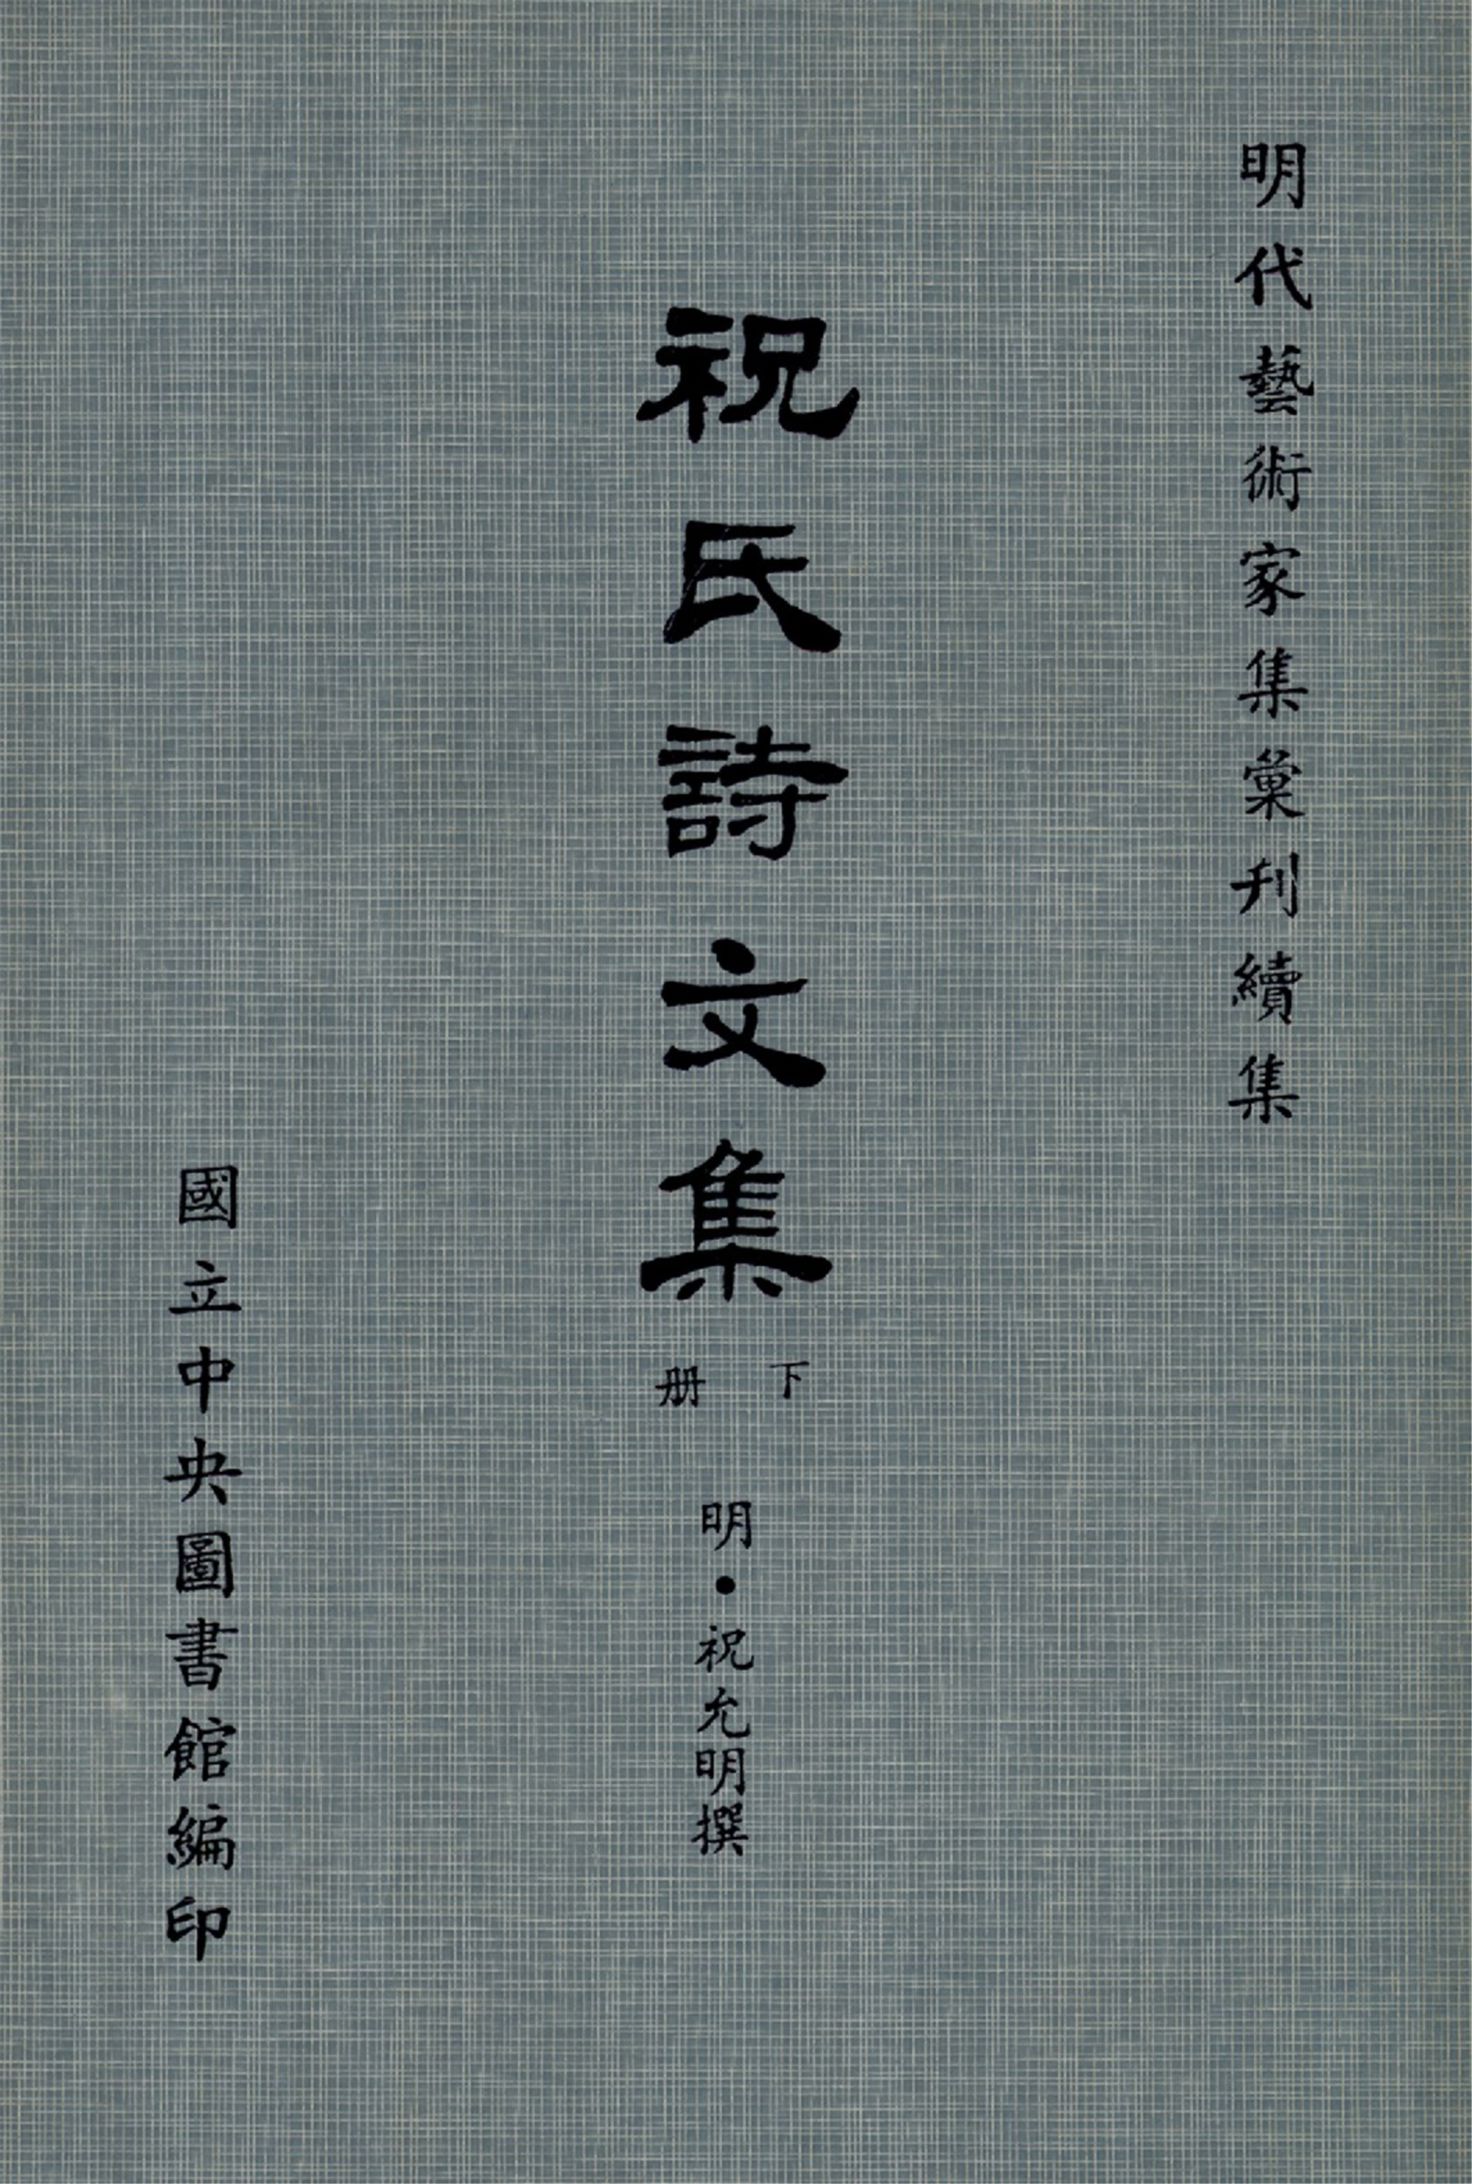 明代藝術家集彙刊續集
祝氏詩文集
下册
明•祝允明撰
國立中央圖書館編印